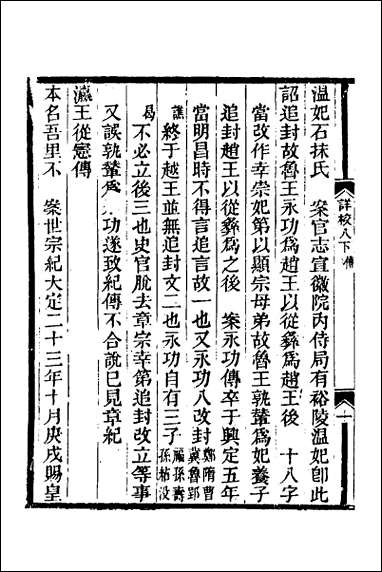 溫妃石抹氏　案官志宣徽院丙侍局有裕陵溫妃卽此
詔追封故魯王永功爲趙王以從彝爲趙王後　十八字
當改作幸崇妃第以顯宗母弟故魯王孰輦爲妃養子
追封趙王以從彝爲之後　案永功傳卒于興定五年
當明昌時不得言追言故一也又永功八改封鄭隋曹冀魯郢
譙終于越王並無追封文二也永功自有三子福孫壽孫粘没
曷不必立後三也史官脫去章宗幸第追封改立等事
又誤孰輦爲永功遂致紀傳不合說已見章紀
瀛王從憲傳
本名吾里不　案世宗紀大定二十三年十月庚戌賜皇
詳校八下　傳